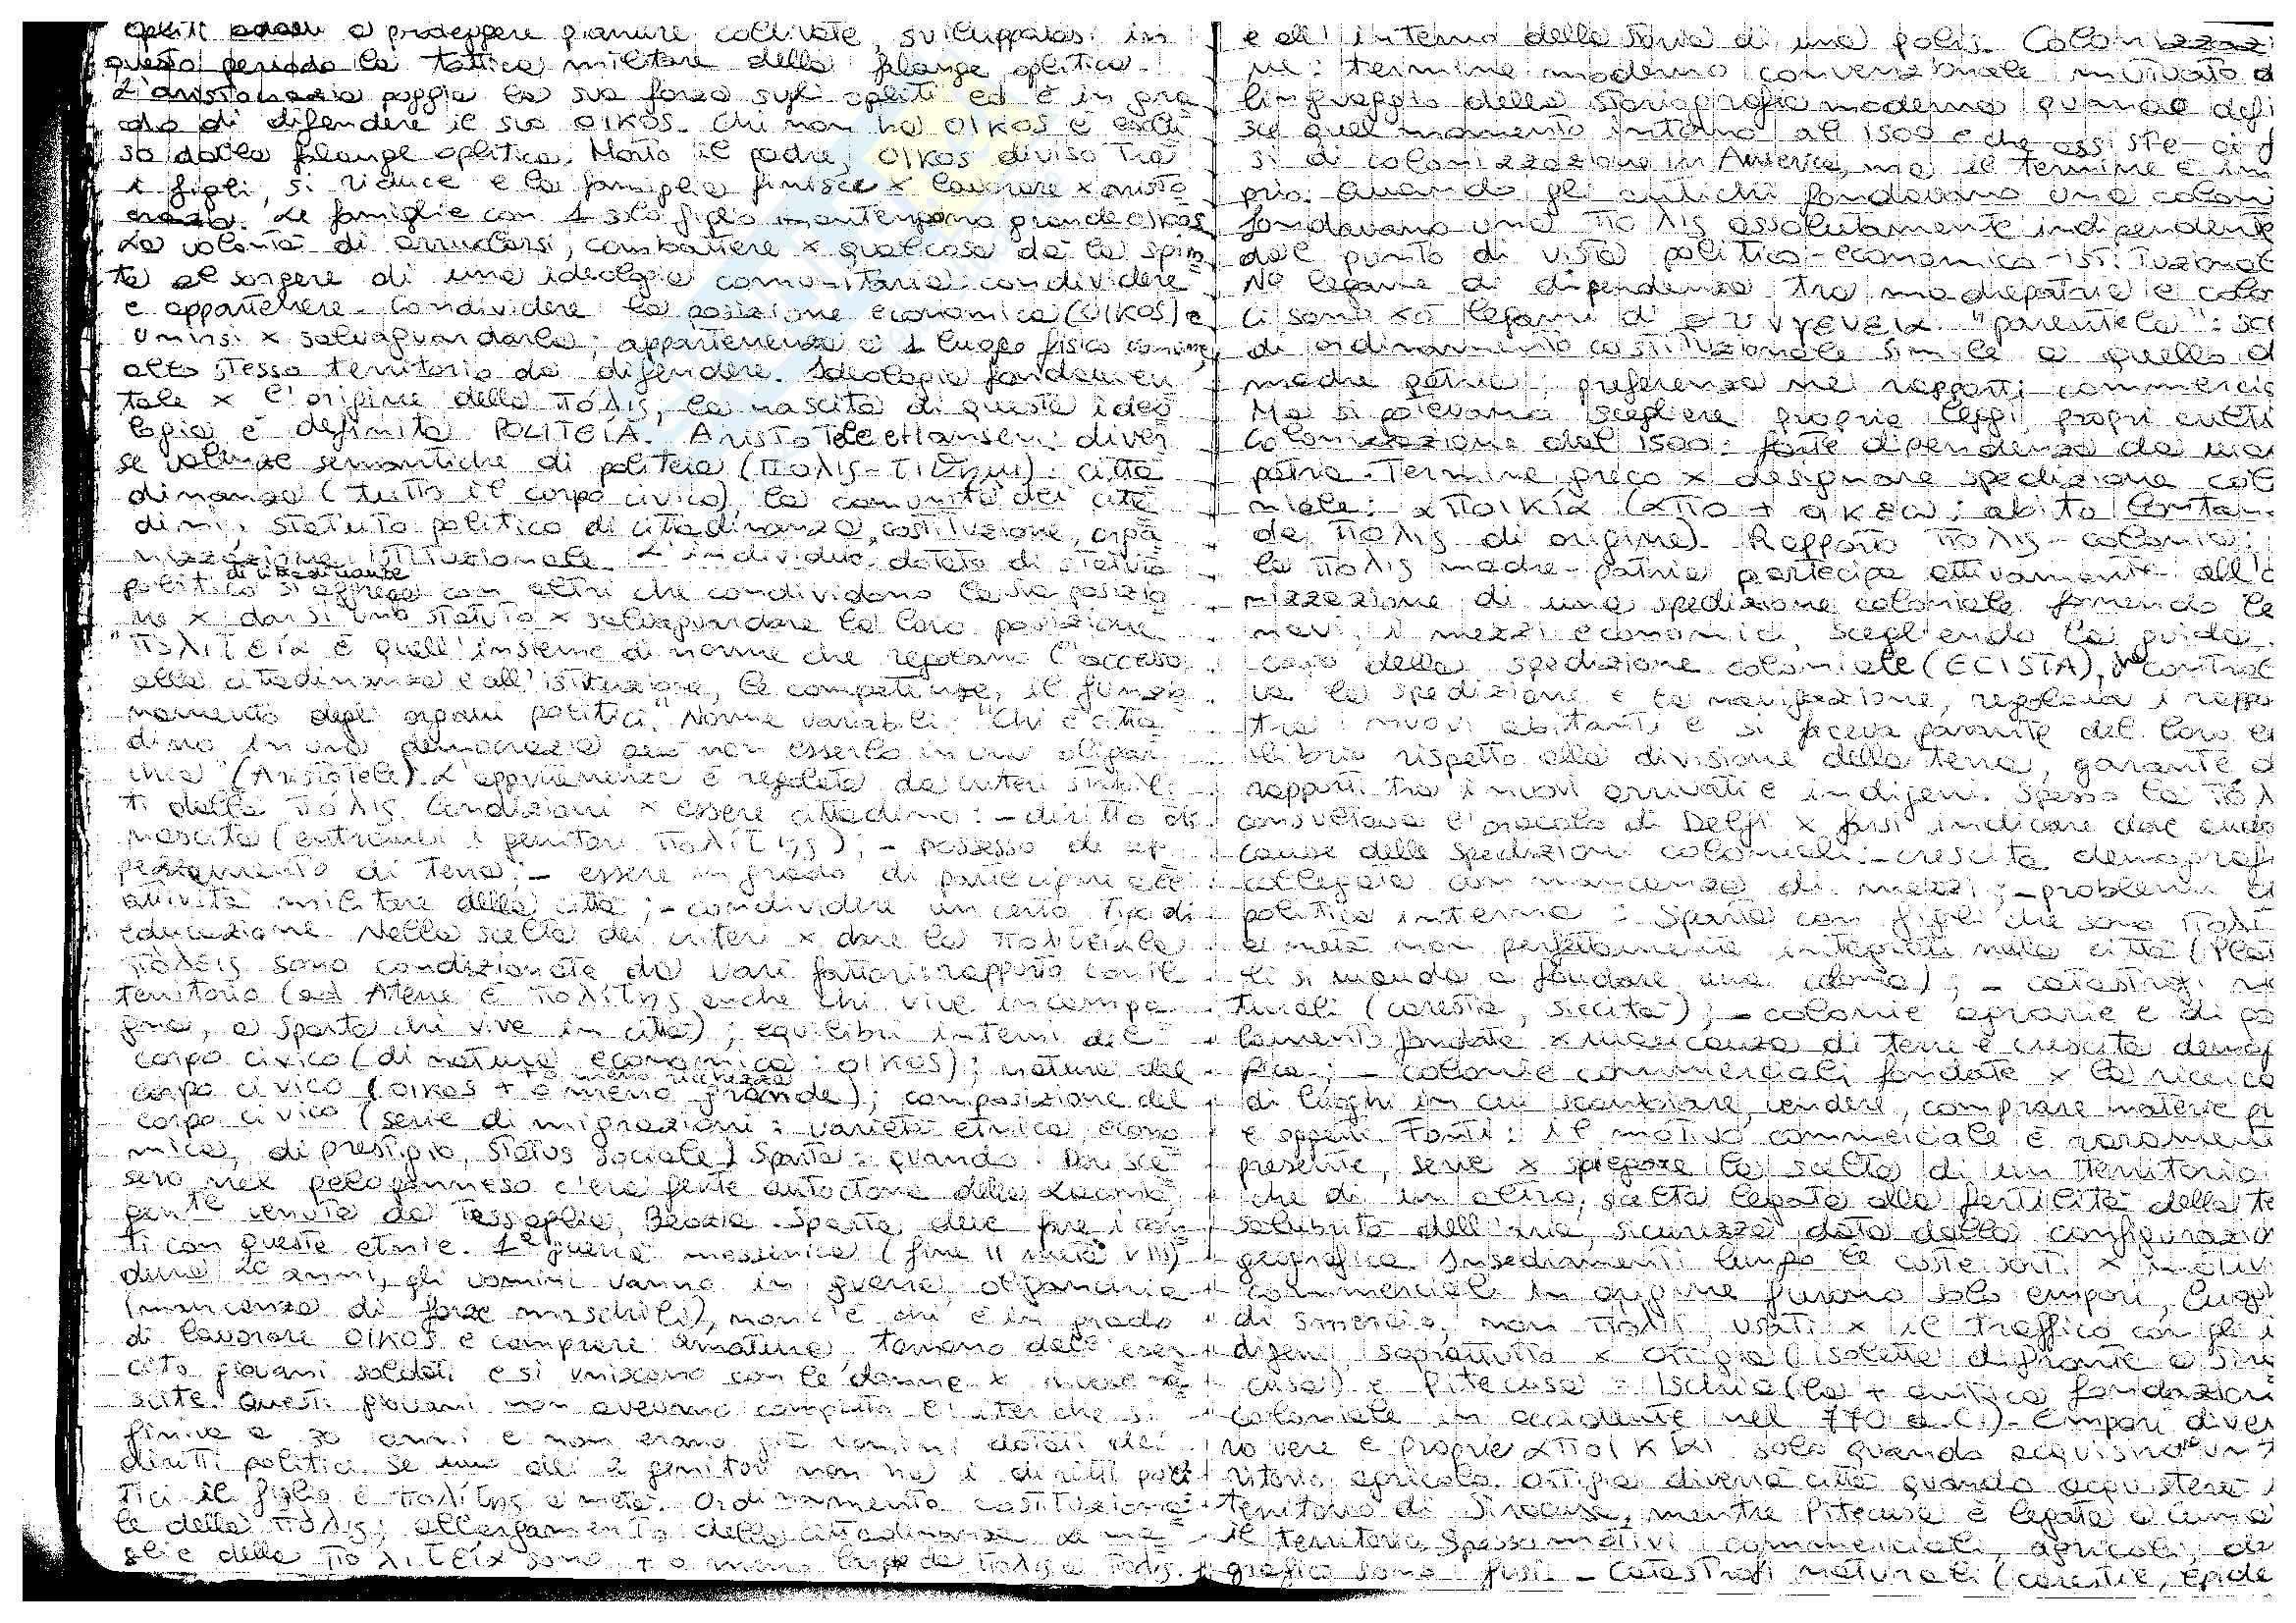 opliti a proteggere pianure coltivate, sviluppatasi in
questo periodo la tattica militare della falange oplitica.
L'aristocrazia poggia la sua forza sugli opliti ed è in gra
do di difendere il suo OIKOS. Chi non ha OIKOS è esclu
so dalla falange oplitica. Morto il padre, OIKOS diviso tra
i figli, si riduce e la famiglia finisce x lavorare x aristo
crazia. Le famiglie con 1 solo figlio mantengono grande OIKOS
La volontà di arruolarsi, combattere x qualcosa dà la spin
ta al sorgere di una ideologia comunitaria: condividere
e appartenere. Condividere la posizione economica (OIKOS) e
unirsi x salvaguardarla; appartenenza a 1 luogo fisico comune,
allo stesso territorio da difendere. Ideologia fondamen
tale x l'origine della πόλις, la nascita di questa ideo
logia è definita POLITEÍA. Aristotele e Hansen: diver
se valenze semantiche di politeia (πολις - ): citta
dinanza (tutto il corpo civico), la comunità dei citta
dini, statuto politico di cittadinanza, costituzione, orga
nizzazione istituzionale. L'individuo dotato di statuto
di cittadinanza
politico si aggrega con altri che condividono la sua posizio
ne x darsi uno statuto x salvaguardare la loro posizione
"πολιτεία è quell'insieme di norme che regolano l'accesso
alla cittadinanza e all'istituzione, le competenze, il funzio
namento degli organi politici". Norme variabili: "Chi è citta
dino in una democrazia può non esserlo in una oligar
chia" (Aristotele). L'appartenenza è regolata da criteri stabili
ti dalla πόλις. Condizioni x essere cittadino: - diritto di
nascita (entrambi i genitori πολίτης); - possesso di ap
pezzamento di terra; - essere in grado di partecipare all'
attività militare della città; - condividere un certo tipo di
educazione. Nella scelta dei criteri x dare la πολιτεία le
πολεις sono condizionate da vari fattori: rapporto con il
territorio (ad Atene è πολίτης anche chi vive in campa
gna, a Sparta chi vive in città); equilibri interni del
corpo civico (di natura economica: OIKOS); natura del
+ o meno ricchezza
corpo civico (OIKOS + o meno grande); composizione del
corpo civico (serie di migrazioni: varietà etnica, econo
mica, di prestigio, status sociale). Sparta: quando i Dori sce
sero nel peloponneso c'era gente autoctona della Laconia,
gente venuta da Tessaglia, Beozia. Sparta deve fare i con
ti con queste etnie. 1ª guerra messenica (fine II metà VIII)
dura 20 anni, gli uomini vanno in guerra, oligandria
(mancanza di forze maschili), non c'è chi è in grado
di lavorare OIKOS e comprare armature, tornano dall'eser
cito giovani soldati e si uniscono con le donne x
Questi giovani non avevano compiuto l'iter che si
finiva a 30 anni e non erano già uomini dotati dei
diritti politici. Se uno dei 2 genitori non ha i diritti poli
tici il figlio è πολίτης a metà. Ordinamento costituziona
le della πόλις; allargamento della cittadinanza. Le ma
glie della πολιτεία sono + o meno larghe da πολις a πολις.
e all'interno della storia di una polis. Colonizzazi
ne: termine moderno convenzionale mutuato d
linguaggio della storiografia moderna quando defi
sce quel momento intorno al 1500 che assiste ai f
si di colonizzazione in America, ma il termine è im
prio. Quando gli antichi fondavano una coloni
fondavano una πολις assolutamente indipendente
dal punto di vista politico-economico-istituzional
No legame di dipendenza tra madrepatria e colo
Ci sono xò legami di συγγενεια "parentela": sc
di ordinamento costituzionale simile a quello d
madre patria; preferenza nei rapporti commercia
Ma si potevano scegliere proprie leggi, propri culti
Colonizzazione del 1500: forte dipendenza da ma
patria. Termine greco x designare spedizione col
niale: αποικία (απο + οικεω: abito lontan
da πολις di origine). Rapporto πολις - colonia:
la πολις madre-patria partecipa attivamente all'o
nizzazione di una spedizione coloniale fornendo le
navi, i mezzi economici, scegliendo la guida
capo della spedizione coloniale (ECISTA), che control
va la spedizione e la navigazione, regolava i rappo
tra i nuovi abitanti e si faceva garante del loro e
ilibrio rispetto alla divisione della terra, garante d
rapporti tra i nuovi arrivati e indigeni. Spesso la πόλ
consultava l'oracolo di Delfi x farsi indicare dove anda
cause delle spedizioni coloniali: - crescita demografi
collegata con mancanza di mezzi; - problemi di
politica interna: Sparta con figli che sono πολι
a metà non perfettamente integrati nella città (
li si manda a fondare una colonia); - catastrofi n
turali (carestia, siccità); - colonie agrarie e di po
lamento fondate x mancanza di terre e crescita demog
fica; - colonie commerciali fondate x la ricerca
di luoghi in cui scambiare, vendere, comprare materie pr
e oggetti. Fonti: il motivo commerciale è rarament
presente, serve x spiegare la scelta di un territorio
che di un altro, scelta legata alla fertilità della te
salubrità dell'aria, sicurezza data dalla configurazion
geografica. Insediamenti lungo le coste sorti x motivi
commerciali in origine furono solo empori, luogh
di smercio, non πολις, usati x il traffico con gli i
digeni, soprattutto x Ortigia (isoletta di fronte a Sira
cusa) e Pitecusa = Ischia (la + antica fondazion
coloniale in occidente nel 770 a.C.). Empori diven
ro vere e proprie αποικίαι solo quando acquisirono un t
ritorio agricolo. Ortigia diverrà città quando acquisterà i
territorio di Siracusa, mentre Pitecusa è legata a Cuma
il territorio. Spesso motivi commerciali, agricoli, de
grafici sono fusi. - Catastrofi naturali (carestie, epide